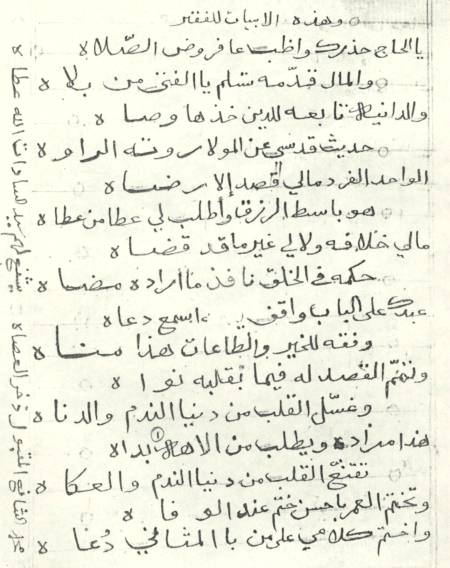 وهذه الابيات للفقير
يا الحاج حذرك واظب عا فروض الصّلاه
والمال قدّمه تسلم يا الفتى من بلاه
والدانيه تابعه للدين خذها وصاه
حديث قدسي عن المولا روته الراوه
الواحد الفرد مالي قصد إلا رضاه
هو باسط الرزق واطلب لي عطا من عطاه
مالي خلافه ولا لي غير ما قد قضاه
حكمه في الخلق نافذ ما اراده مضاه
عبدك على الباب واقف اسمع دعاه
وفقه للخير والطاعات هذا مناه
وتمّم القصد له فيما بقلبه نواه
وغسّل القلب من دنيا الندم والدناه
هذا مراده ويطلب من الاهل بداه
القلب من دنيا الندم و
وتختم العمر با حسن ختم عند الوفاه
واختم كلامي على من با المثاني دعاه
محمد الشافع المقبول ذخر العصاه
يشفع لهم